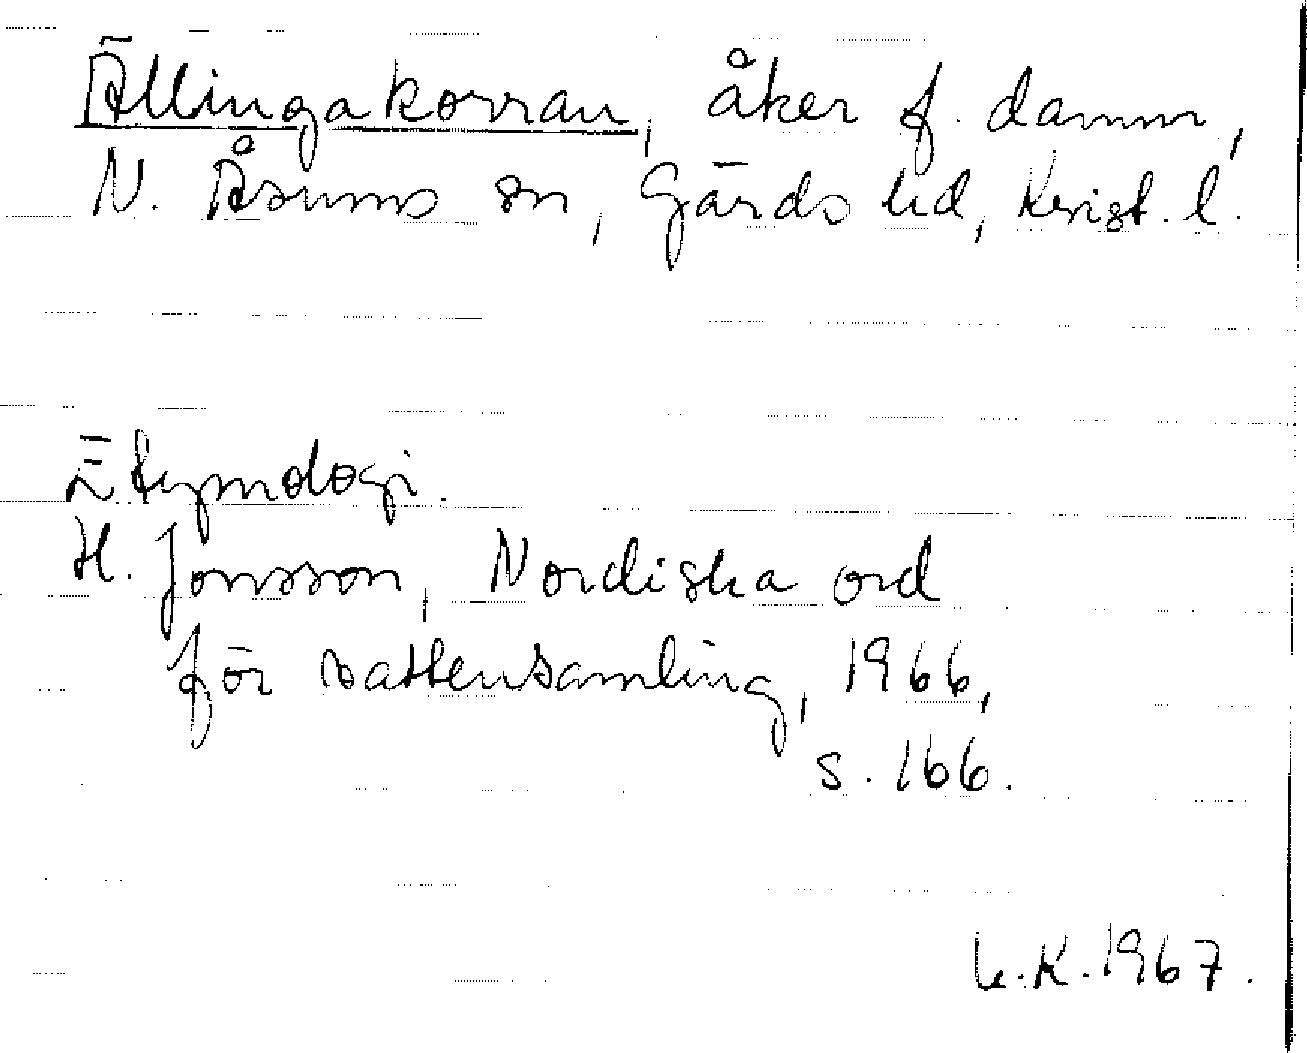 Ällingakorran, åker f. damm,
N. Åsums sn, Gärds hd, Krist. l.
Etymologi.
H. Jonsson, Nordiska ord
för vattensamling, 1966,
s. 166.
G.K. 1967.